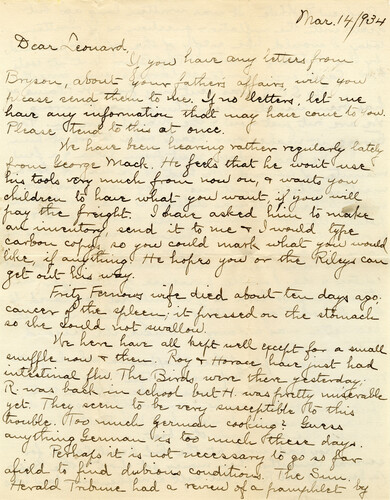 Mar. 14/934
Dear Leonard,
If you have any letters from
Bryson, about your father's affairs, will you
please send them to me. If no letters, let me
have any information that may have come to you.
Please tend to this at once.
We have been hearing rather regularly lately
from George Mack. He feels that he won't use
his tools very much from now on, & wants you
children to have what you want, if you will
pay the freight. I have asked him to make
an inventory, send it to me & I would type
carbon copy, so you could mark what you would
like, if anything. He hopes you or the Rileys can
get out his way.
Fritz wife died about ten days ago,
cancer of the spleen; it pressed on the stomach
so she could not swallow.
We here have all kept well except for a small
snuffle now & then. Roy & Horace have just had
intestinal flu. The Birds were there yesterday.
R. was back in school but H. was pretty miserable
yet. They seem to be very susceptible to this
trouble. Too much German cooking? Guess
anything German is too much these days.
Perhaps it is not necessary to go so far
afield to find dubious conditions. The Sun.
Herald Tribune had a review of a pamphlet by